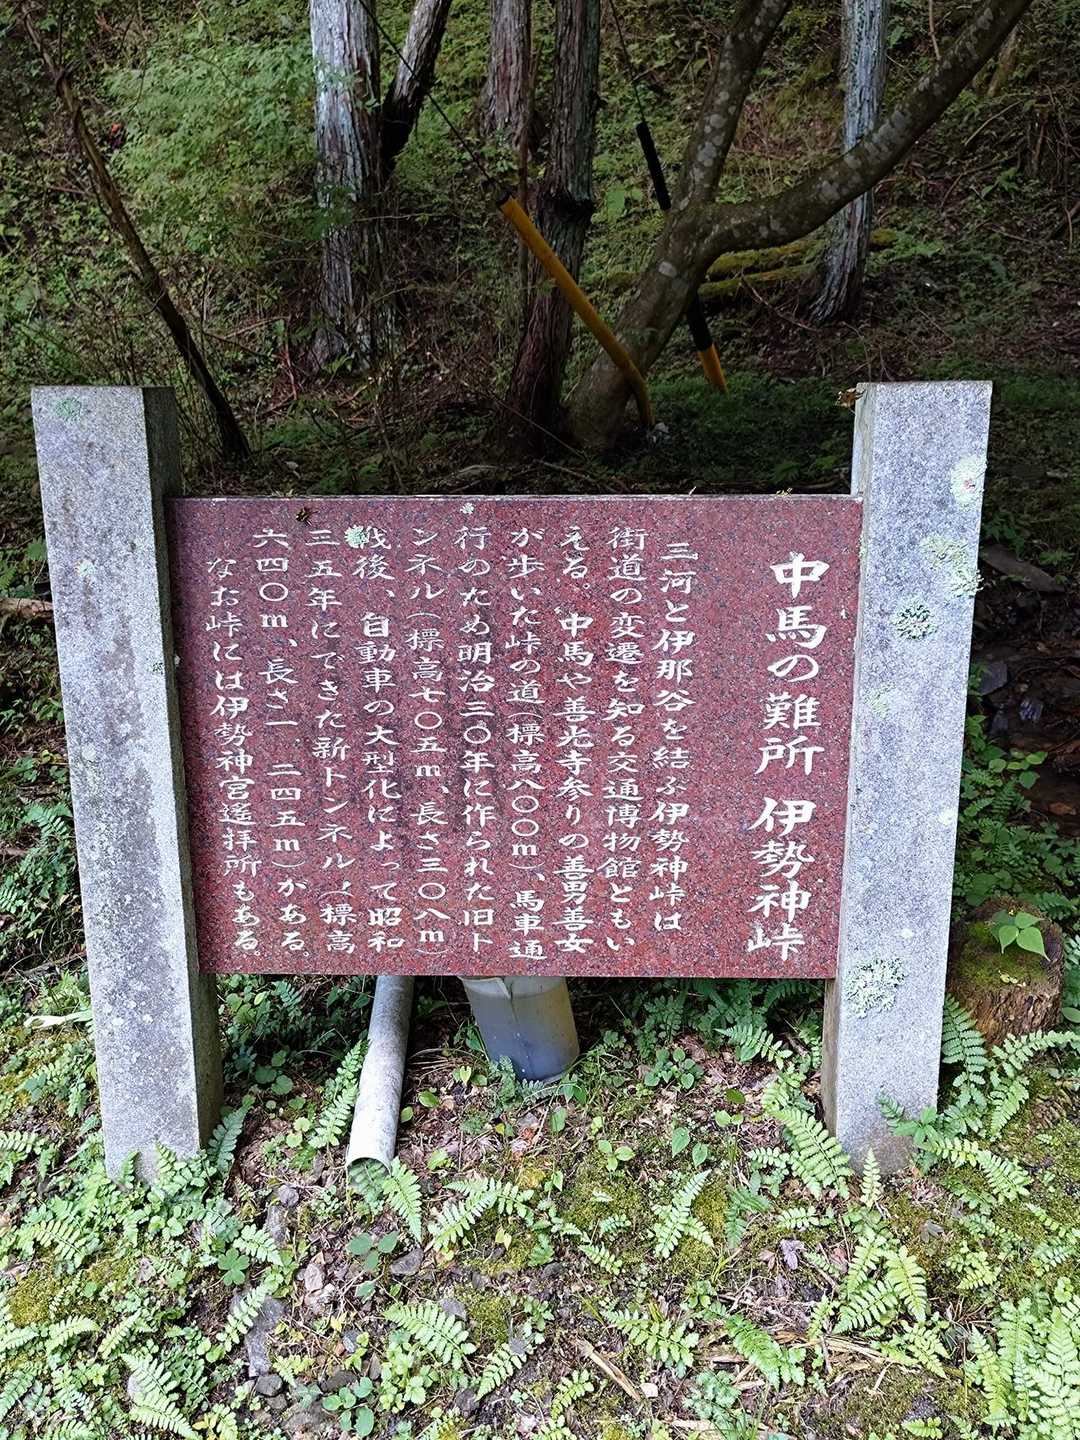 中馬の難所 伊勢神峠
三河と伊那谷を結ぶ伊勢神峠は
街道の変遷を知る交通博物館ともい
える。中馬や善光寺参りの善男善女
が歩いた峠の道(標高八〇〇m)、馬車通
行のため明治三〇年に作られた旧ト
ンネル(標高七〇五m、長さ三〇八m)
戦後、自動車の大型化によって昭和
三五年にできた新トンネル(標高
六四〇m、長さ一、二四五m)がある。
なお峠には伊勢神宮遙拝所もある。